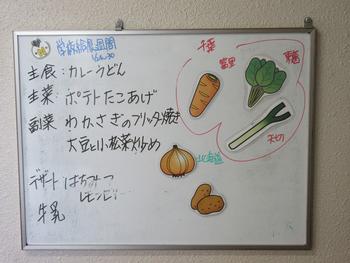 学校給食週間
主食：カレーうどん
主菜：ポテトたこあげ
副菜 わかさぎのフリッター焼き
大豆と小松菜の炒め
デザート はちみつ
レモンゼリー
牛乳
千葉
富里
八街
北海道